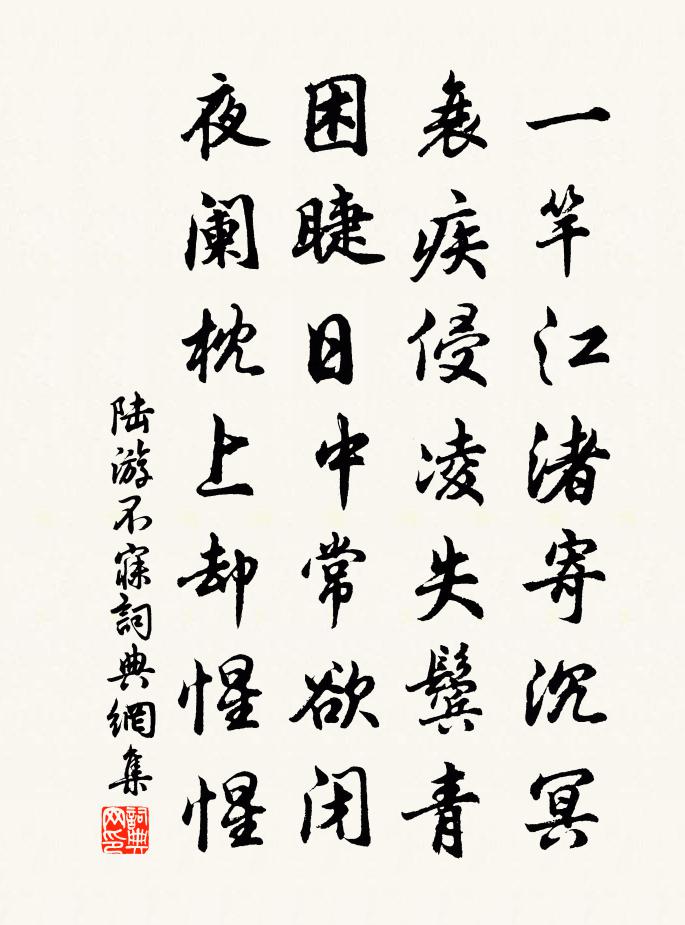 一竿江渚寄沉冥
衰疾侵凌失鬓青
困睫日中常欲闭
夜阑枕上却惺惺
陆游不寐詞典網集
詞典
网印